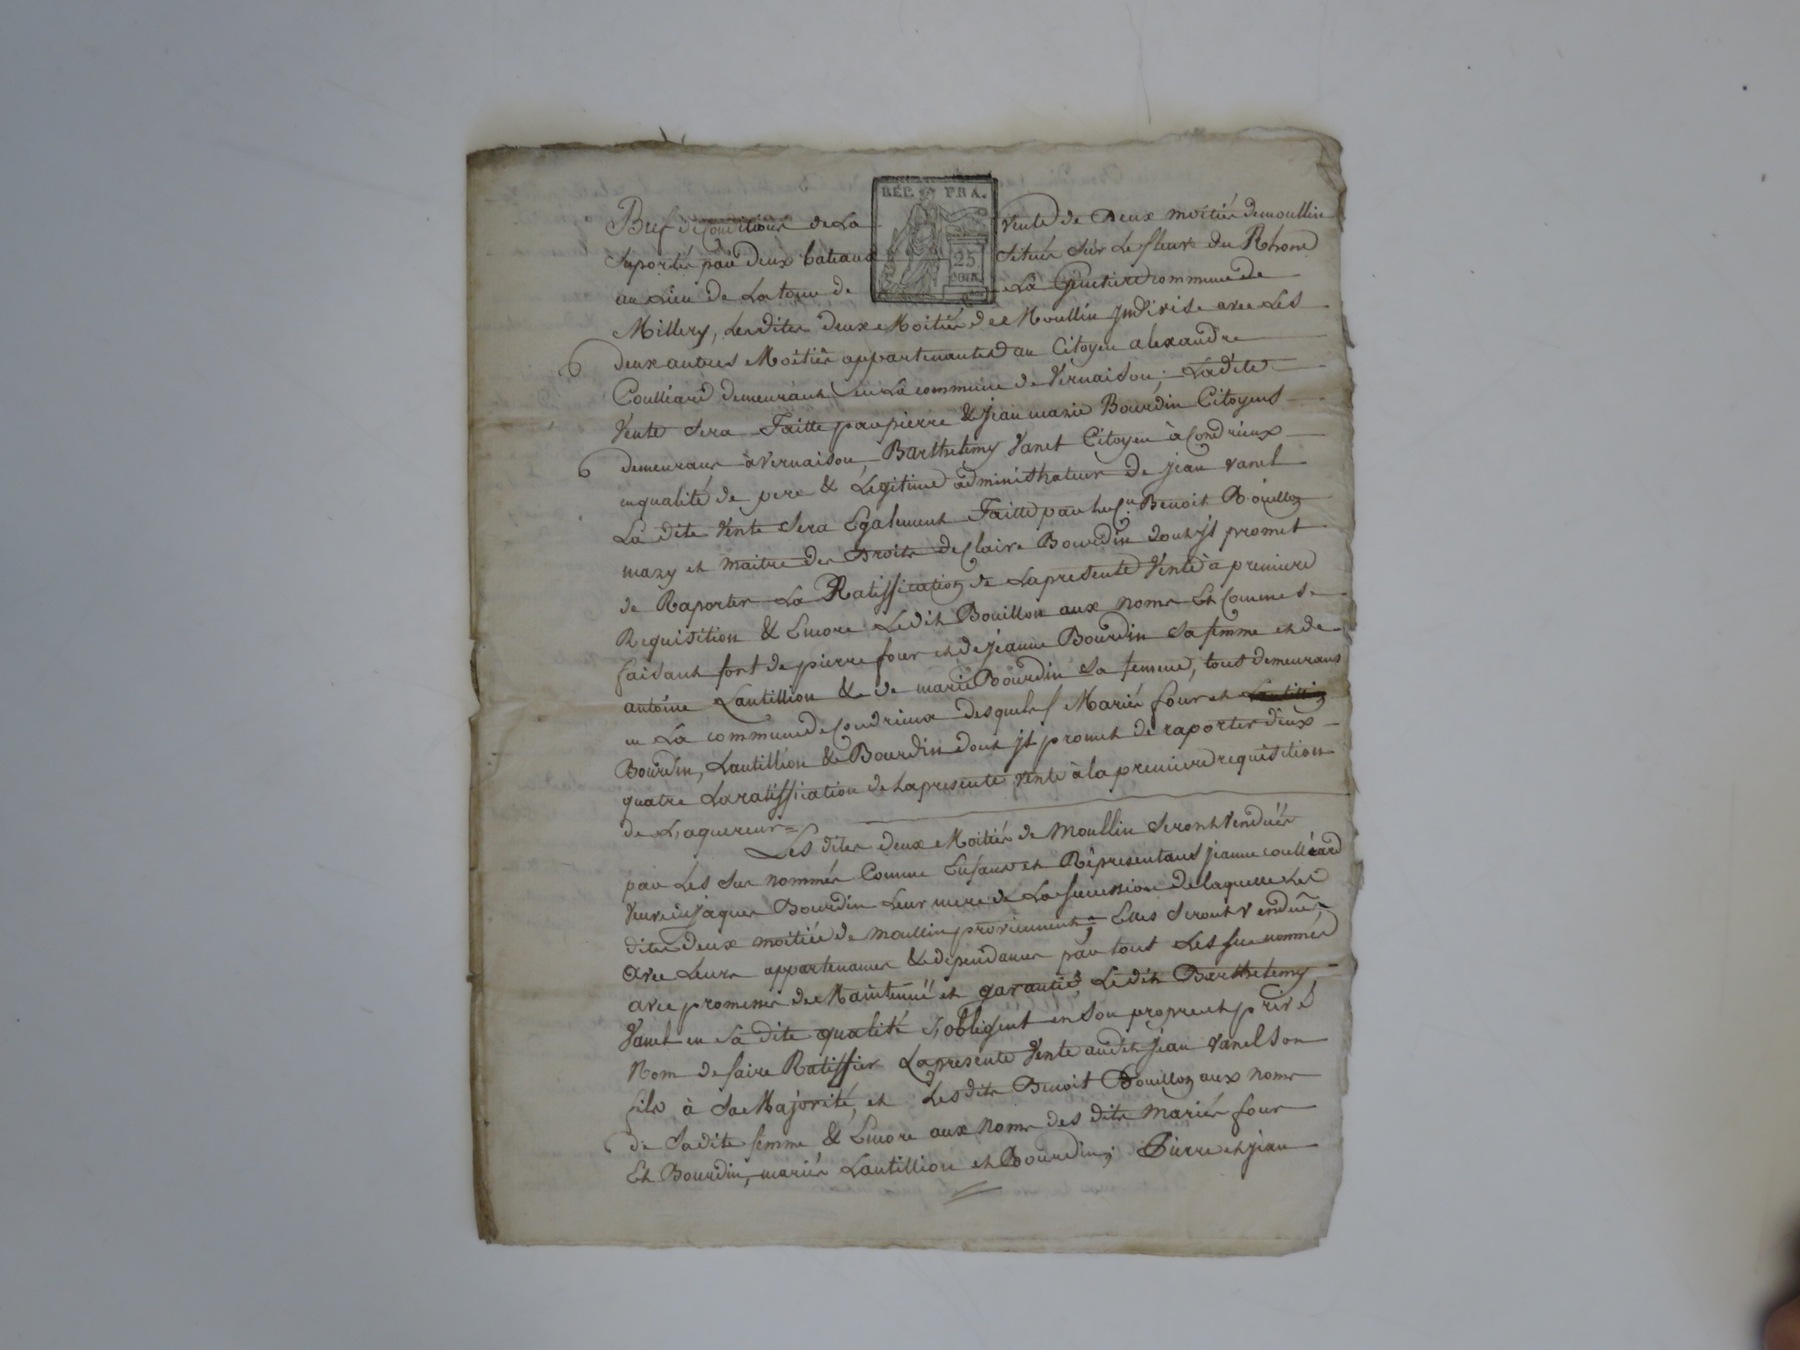 RÉP. FRA.
25
Bref de Conditions de La vente de Deux moitiés demoullin
suportés par deux bateaux scitués sur Le fleuve du Rohone
au Lieu de La tour de La commune de
Millery, Lesdites deux Moitiés de Moullin Jndivise avec Les
deux autres Moitiés appartenantes au Citoyen alexandre
Coulliard demeurant en La commune de Vernaison; Ladite
Vente sera faitte par pierre & jean marie Bourdin Citoyens
demeurans à Vernaison, Barthelemy Vanel Citoyen à Condrieux
en qualité de pere & Legitime administrateur de jean Vanel
La dite Vente sera Egalement Faitte par le Cn. Benoit Bouillon
mary et maitre des Droits de Claire Bourdin dont jl promet
de Raporter La Ratiffication de La presente Vente à premiere
Requisition & Encore Ledit Bouillon aux noms Et Comme se
faisant fort de pierre four et de jeanne Bourdin sa femme et de
antoine Lantillion & de marie Bourdin sa femme, tous demeurans
en La commune de Condrieux desquels Mariés four et
Bourdin, Lantillion & Bourdin dont jl promet de raporter d'eux
quatre La ratiffication de La presente Vente à la premiere requisition
de L'aquereur =
Les dites deux Moitiés de Moullin seront Vendués
par Les sus nommés Comme Enfans et Répresentans jeanne coulléard
Veuve jaques Bourdin Leur mere de La succession de laquelle Les
dites deux moitiés de moullin proviennent; Elles seront Vendues
avec Leurs appartenances & dependances par tous Les sus nommés
avec promesses de Maintenué et garantie, Le dit Barthelemy
Vanel en sa dite qualité s'obligent en son propre et privé
Nom de faire Ratiffier La presente Vente audit jean Vanel son
fils à sa Majorité, et Lesdits Benoit Bouillon aux noms
de sadite femme & Encore aux noms des dits mariés four
Et Bourdin, mariés Lantillion et Bourdin; Pierre et jean